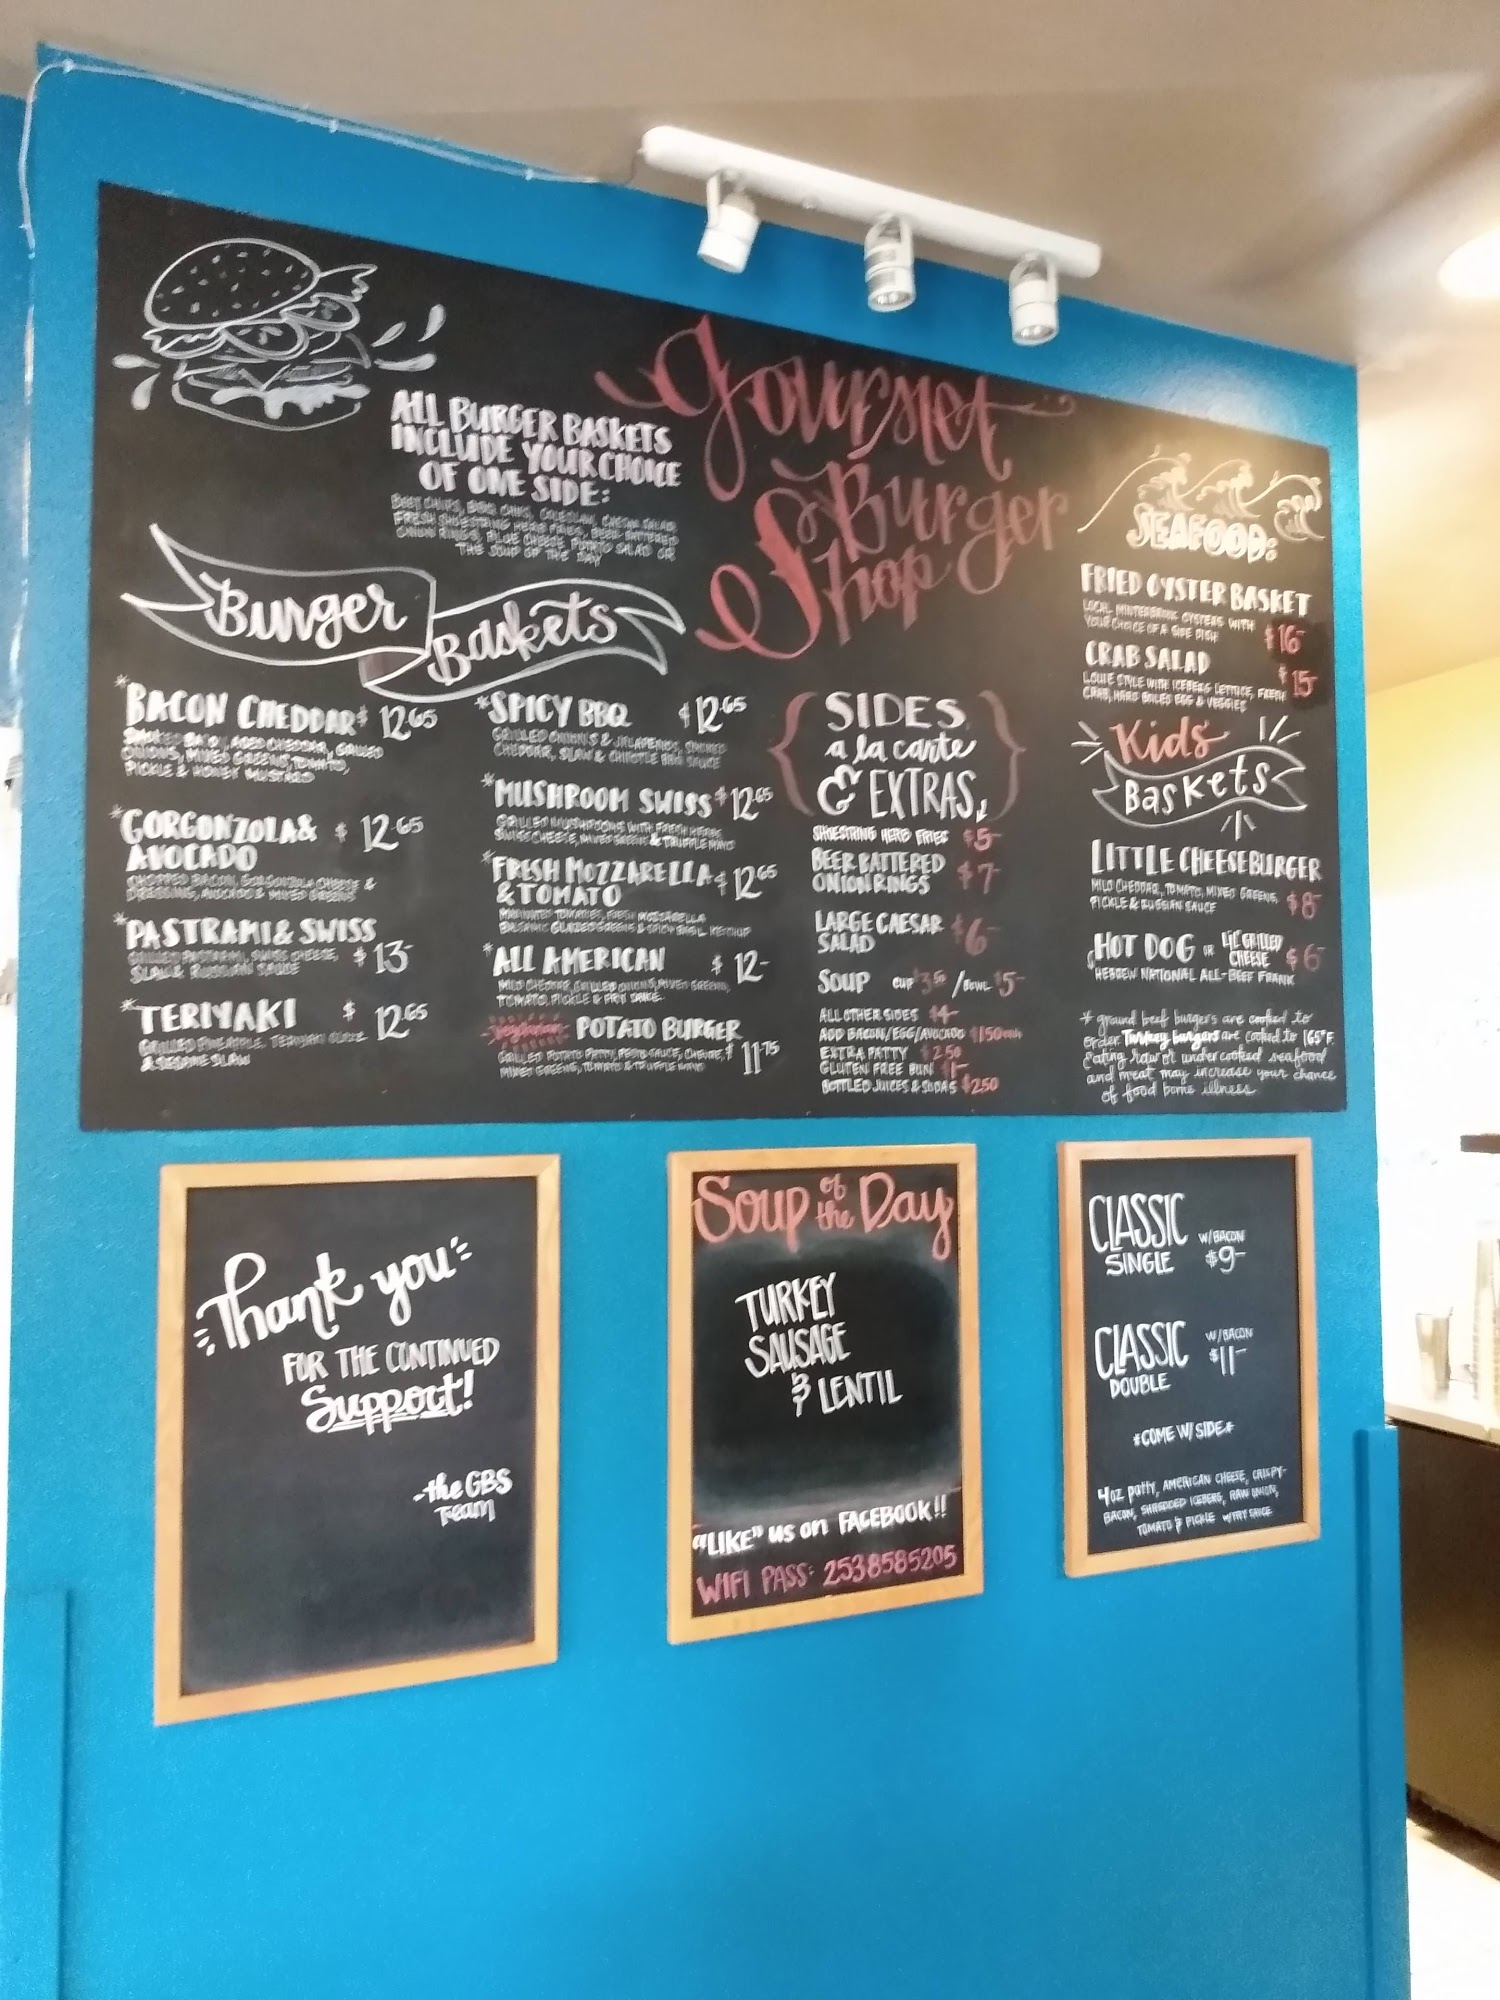 Gourmet
Burger
Shop
ALL BURGER BASKETS
INCLUDE YOUR CHOICE
OF ONE SIDE:
BEET CHIPS, BBQ CHIPS, COLESLAW, CAESAR SALAD
FRESH SHOESTRING HERB FRIES, BEER BATTERED
ONION RINGS, BLUE CHEESE POTATO SALAD OR
THE SOUP OF THE DAY
Burger
Baskets
*BACON CHEDDAR $12.65
SMOKED BACON, AGED CHEDDAR, GRILLED
ONIONS, MIXED GREENS, TOMATO,
PICKLE & HONEY MUSTARD
*GORGONZOLA & $12.65
AVOCADO
CHOPPED BACON, GORGONZOLA CHEESE &
DRESSING, AVOCADO & MIXED GREENS
*PASTRAMI & SWISS
GRILLED PASTRAMI, SWISS CHEESE, $13-
SLAW & RUSSIAN SAUCE
*TERIYAKI $12.65
GRILLED PINEAPPLE, TERIYAKI GLAZE
& SESAME SLAW
*SPICY BBQ $12.65
GRILLED ONIONS & JALAPENOS, SMOKED
CHEDDAR, SLAW & CHIPOTLE BBQ SAUCE
*MUSHROOM SWISS $12.65
GRILLED MUSHROOMS WITH FRESH HERBS,
SWISS CHEESE, MIXED GREENS & TRUFFLE MAYO
*FRESH MOZZARELLA $12.65
& TOMATO
MARINATED TOMATOES, FRESH MOZZARELLA
BALSAMIC GLAZED GREENS & SPICY BASIL KETCHUP
*ALL AMERICAN $12-
MILD CHEDDAR, GRILLED ONIONS, MIXED GREENS,
TOMATO, PICKLE & FRY SAUCE
Vegetarian POTATO BURGER
GRILLED POTATO PATTY, PESTO SAUCE, CHEDDAR, $11.75
MIXED GREENS, TOMATO & TRUFFLE MAYO
SIDES
a la carte
& EXTRAS
SHOESTRING HERB FRIES $5-
BEER BATTERED
ONION RINGS $7-
LARGE CAESAR
SALAD $6-
SOUP CUP $3.50 / BOWL $5-
ALL OTHER SIDES $4-
ADD BACON/EGG/AVOCADO $1.50 each
EXTRA PATTY $2.50
GLUTEN FREE BUN $1-
BOTTLED JUICES & SODAS $2.50
SEAFOOD:
FRIED OYSTER BASKET
LOCAL MINTERBROOK OYSTERS WITH
YOUR CHOICE OF A SIDE DISH $16-
CRAB SALAD
LOUIE STYLE WITH ICEBERG LETTUCE, FRESH $15-
CRAB, HARD BOILED EGG & VEGGIES
Kids'
Baskets
LITTLE CHEESEBURGER
MILD CHEDDAR, TOMATO, MIXED GREENS,
PICKLE & RUSSIAN SAUCE $8-
HOT DOG OR LIL' GRILLED CHEESE $6-
HEBREW NATIONAL ALL-BEEF FRANK
* ground beef burgers are cooked to
order. Turkey burgers are cooked to 165°F.
Eating raw or undercooked seafood
and meat may increase your chance
of food borne illness.
Thank you
FOR THE CONTINUED
Support!
-the GBS
Team
Soup of the Day
TURKEY
SAUSAGE
& LENTIL
"LIKE" us on FACEBOOK!!
WIFI PASS: 2538585205
CLASSIC W/BACON
SINGLE $9-
CLASSIC W/BACON
DOUBLE $11-
*COME W/ SIDE*
4oz patty, AMERICAN CHEESE, CRISPY-
BACON, SHREDDED ICEBERG, RAW ONION,
TOMATO & PICKLE w/FRY SAUCE